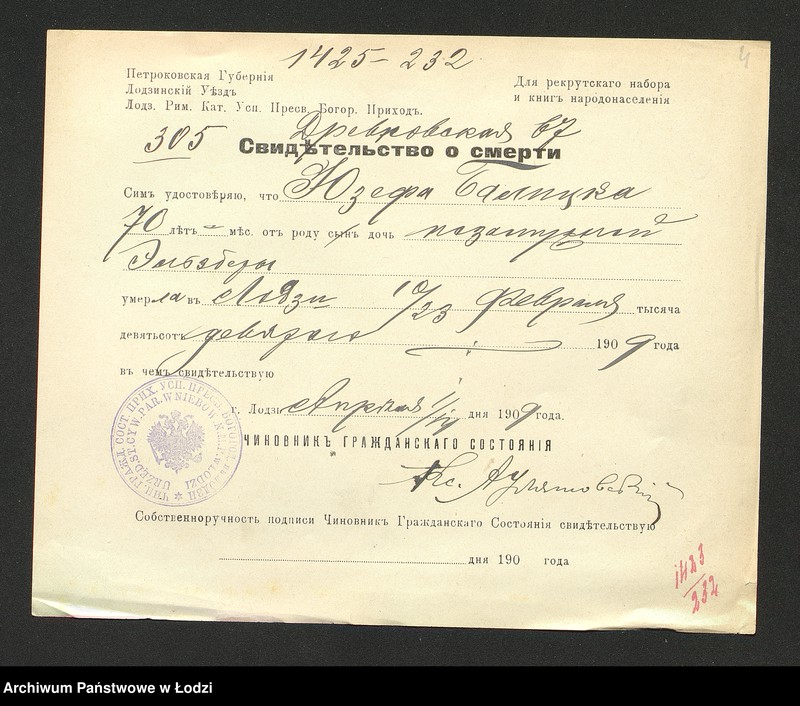 1425-232
4
Петроковская Губернія
Лодзинскій Уѣздъ
Лодз. Рим. Кат. Усп. Пресв. Богор. Приходъ.
Для рекрутскаго набора
и книгъ народонаселенія
305
Древновская 67
Свидѣтельство о смерти
Симъ удостовѣряю, что Юзефа Балицка
70 лѣтъ - мѣс. отъ роду сынъ дочь незамужной
Эльзбеты
умерла въ Лодзи 10/23 Февраля тысяча
девятьсотъ девятаго 1909 года
въ чемъ свидѣтельствую
г. Лодзь Апрѣля 1/14 дня 1909 года.
ЧИНОВНИКЪ ГРАЖДАНСКАГО СОСТОЯНІЯ
Кс.
Собственноручность подписи Чиновникъ Гражданскаго Состоянія свидѣтельствую
дня 190 года
1423/232
Archiwum Państwowe w Łodzi